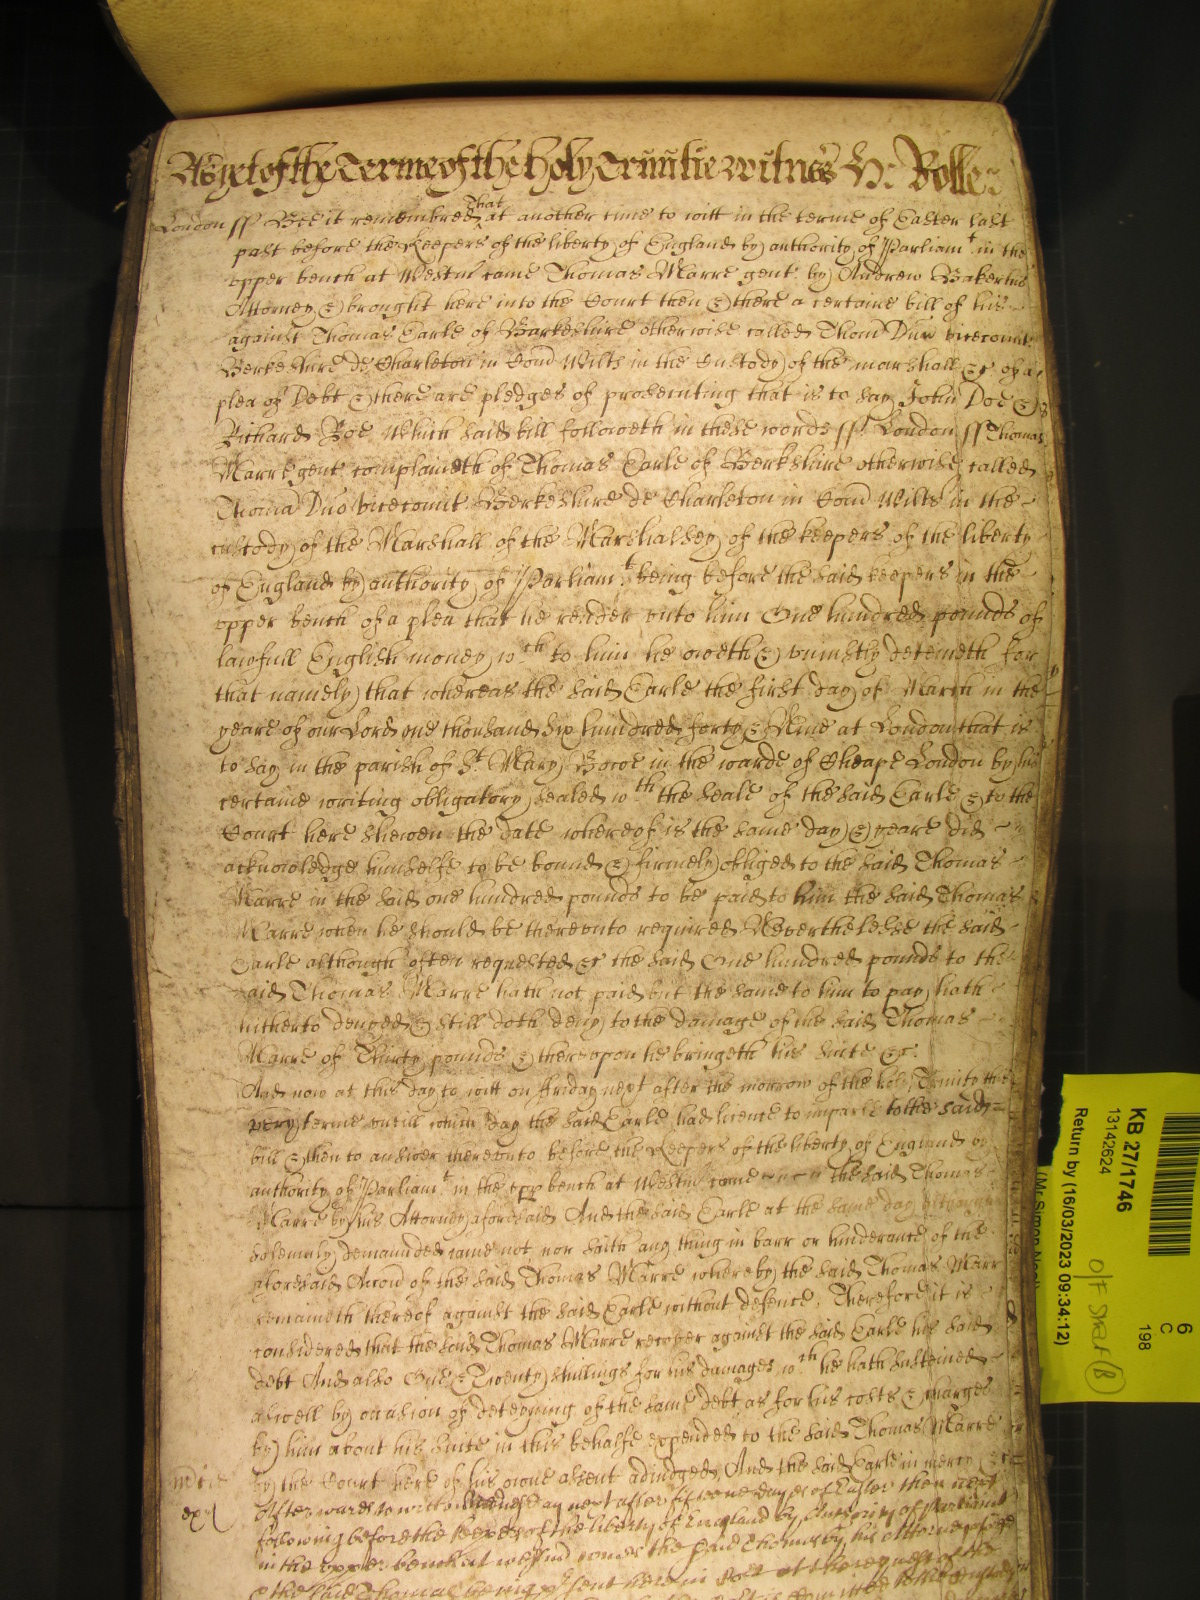 As yet of the Terme of the holy Trinitie witnes H: Rolle
London ss Bee it remembred That at another time to witt in the terme of Easter last
past before the Keepers of the liberty of England by authority of Parliamt in the
upper bench at Westmr came Thomas Marre gent by Andrew
Attorney & brought here into the Court then & there a certaine bill of his
against Thomas Earle of Barkeshire otherwise called Thom Duo vicecomit
Berkeshire de Charleton in Com Wilts in the Custody of the marshall &c of a
plea of Debt & there are pledges of prosecuting that is to say John Doe &
Richard Roe Which said bill followeth in these words ss London ss Thomas
Marre gent complaineth of Thomas Earle of Berkshire otherwise called
Thoma Duo vicecomit Berkeshire de Charleton in Com Wilts in the
custody of the Marshall of the Marshalsey of the keepers of the liberty
of England by authority of Parliamt being before the said keepers in the
upper bench of a plea that he render unto him One hundred pounds of
lawfull English money wch to him he oweth & uniustly deteineth for
that namely that whereas the said Earle the first day of March in the
yeare of our Lord one thousand six hundred forty & Nine at London that is
to say in the parish of St Mary Bowe in the warde of Cheape London by his
certaine writing obligatory sealed wth the seale of the said Earle & to the
Court here shewen the date whereof is the same day & yeare did
acknowledge himselfe to be bound & firmely obliged to the said Thomas
Marre in the said one hundred pounds to be paid to him the said Thomas
Marre when he should be thereunto required Neverthelesse the said
Earle although often requested &c the said One hundred pounds to the
said Thomas Marre hath not paid but the same to him to pay hath
hitherto denyed & still doth deny to the damage of the said Thomas
Marre of Thirty pounds & thereupon he bringeth his suite &c.
And now at this day to witt on Friday next after the morrow of the holy Trinity this
very terme untill which day the said Earle had licence to imparle to the said
bill & then to answer thereunto before the Keepers of the liberty of England by
authority of Parliamt in the upp bench at Westmr come the said Thomas
Marre by his Attorney aforesaid And the said Earle at the same day
solemnly demaunded came not nor saith any thing in barr or hinderance of the
aforesaid Accon of the said Thomas Marre whereby the said Thomas Marr
remaineth thereof against the said Earle without defence. Therefore it is
considered that the said Thomas Marre recover against the said Earle his said
debt And also One & Twenty shillings for his damages wch he hath susteined
aswell by occasion of deteyning of the same debt as for his costs & charges
by him about his suite in this behalfe expended to the said Thomas Marre
by the Court here of his owne assent adiudged, And the said Earle in mercy &c
Afterwards to witt on next after fifteene dayes of Easter then next
following before the keepers of the liberty of England by Authority of Parliamt
in the upper bench at Westmr comes the said Thomas by his Attorney
& the said Thomas being psent here in Cort at the request of the
KB 27/1746
13142624
Return by (16/03/2023 09:34:12)
6
C
198